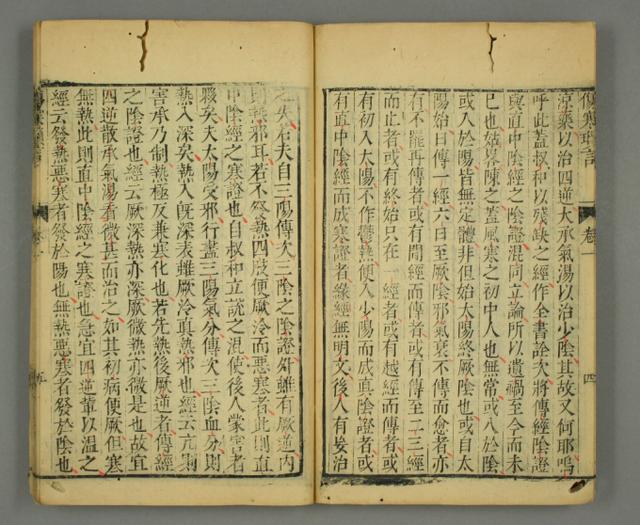 涼藥以治四逆大承氣湯以治少陰其故又何耶嗚
呼此蓋叔和以殘缺之經作全書詮次將傳經陰證
與直中陰經之陰證混同立論所以遺禍至今而未
已也姑畧陳之蓋風寒之初中人也無常或入於陰
或入於陽皆無定體非但始太陽終厥陰也或自太
陽始日傳一經六日至厥陰邪氣衰不傳而愈者亦
有不罷再傳者或有間經而傳者或有傳至二三經
而止者或有終始只在一經者或有越經而傳者或
有初入太陽不作鬱熱便入少陽而成真陰證者或
有直中陰經而成寒證者緣經無明文後人有妄治
之失若夫自三陽傳次三陰之陰證外雖有厥逆內
則熱邪耳若不發熱四肢便厥冷而惡寒者此則直
中陰經之寒證也自叔和立說之混使後人蒙害者
夥矣夫太陽受邪行盡三陽氣分傳次三陰血分則
熱入深矣熱入既深表雖厥冷真熱邪也經云亢則
害承乃制熱極反兼寒化也若先熱後厥逆者傳經
之陰證也經云厥深熱亦深厥微熱亦微是也故宜
四逆散承氣湯看微甚而治之如其初病便厥但寒
無熱此則直中陰經之寒證也急宜四逆輩以溫之
經云發熱惡寒者發於陽也無熱惡寒者發於陰也
卷一
四
五